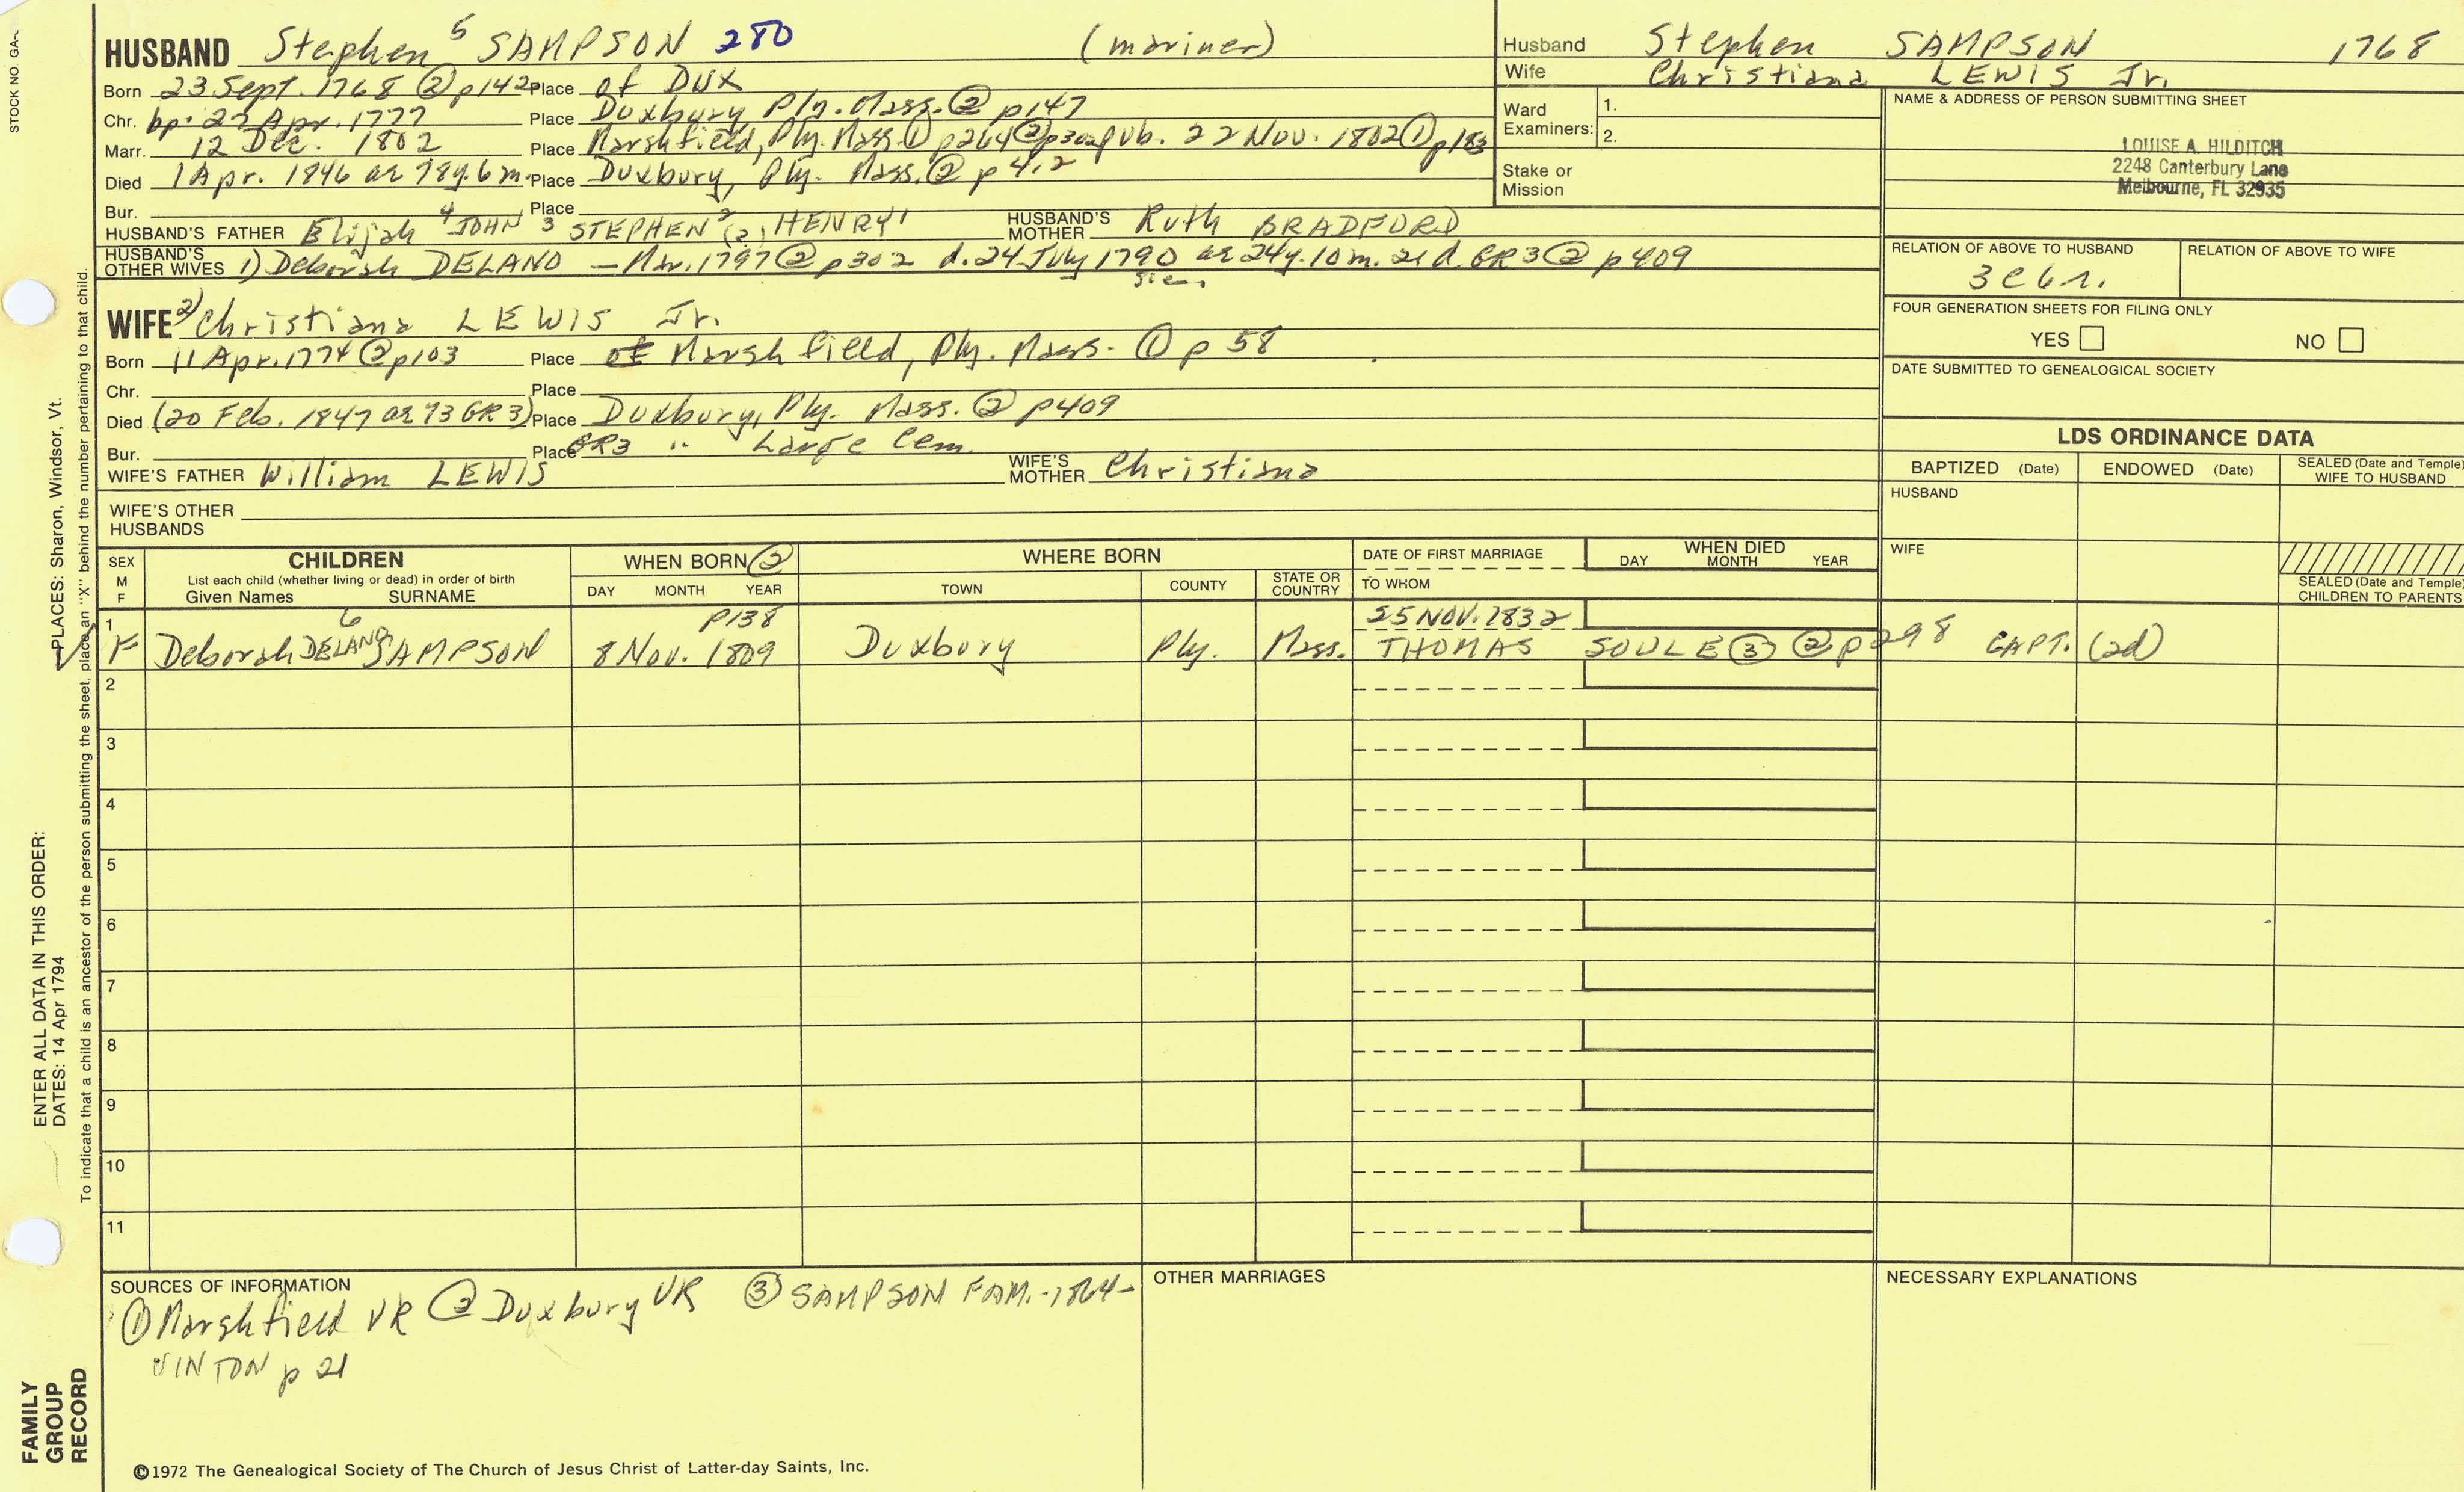 STOCK NO. GA-
HUSBAND Stephen 5 SAMPSON 280 (mariner)
Born 23 Sept. 1768 ② p142 Place of DUX
Chr. bp. 27 Apr. 1777 Place Duxbury Ply. Mass. ② p147
Marr. 12 Dec. 1802 Place Marshfield, Ply. Mass. ① p264 ② p302 pub. 22 Nov. 1802 ① p183
Died 1 Apr. 1846 ae 78y. 6m. Place Duxbury, Ply. Mass. ② p 412
Bur. Place
HUSBAND'S FATHER Elijah 4 JOHN 3 STEPHEN 2 (2) HENRY 1 HUSBAND'S MOTHER Ruth BRADFORD
HUSBAND'S OTHER WIVES 1) Deborah DELANO — Mar. 1797 ② p302 d. 24 July 1790 ae 24y. 10m. 21d. GR3 ② p409
sic.
Husband Stephen SAMPSON 1768
Wife Christiana LEWIS Jr.
Ward Examiners: 1.
2.
Stake or Mission
NAME & ADDRESS OF PERSON SUBMITTING SHEET
LOUISE A. HILDITCH
2248 Canterbury Lane
Melbourne, FL 32935
RELATION OF ABOVE TO HUSBAND RELATION OF ABOVE TO WIFE
3 c 6 r.
FOUR GENERATION SHEETS FOR FILING ONLY
YES NO
DATE SUBMITTED TO GENEALOGICAL SOCIETY
WIFE 2) Christiana LEWIS Jr.
Born 11 Apr. 1774 ② p103 Place of Marshfield, Ply. Mass. ① p 58
Chr. Place
Died (20 Feb. 1847 ae 73 GR3) Place Duxbury, Ply. Mass. ② p409
Bur. Place GR3 " Large Cem.
WIFE'S FATHER William LEWIS WIFE'S MOTHER Christiana
WIFE'S OTHER HUSBANDS
LDS ORDINANCE DATA
BAPTIZED (Date) ENDOWED (Date) SEALED (Date and Temple) WIFE TO HUSBAND
HUSBAND
WIFE
SEALED (Date and Temple) CHILDREN TO PARENTS
SEX M F CHILDREN List each child (whether living or dead) in order of birth Given Names SURNAME
WHEN BORN ② DAY MONTH YEAR
WHERE BORN TOWN COUNTY STATE OR COUNTRY
DATE OF FIRST MARRIAGE TO WHOM
WHEN DIED DAY MONTH YEAR
1 6 p138 25 NOV. 1832
F Deborah DELANO SAMPSON 8 Nov. 1809 Duxbury Ply. Mass. THOMAS SOULE ③ ② p298 CAPT. (2d)
2
3
4
5
6
7
8
9
10
11
SOURCES OF INFORMATION
① Marshfield VR ② Duxbury VR ③ SAMPSON FAM. -1864-
VINTON p 21
OTHER MARRIAGES
NECESSARY EXPLANATIONS
©1972 The Genealogical Society of The Church of Jesus Christ of Latter-day Saints, Inc.
FAMILY GROUP RECORD
ENTER ALL DATA IN THIS ORDER:
DATES: 14 Apr 1794
PLACES: Sharon, Windsor, Vt.
To indicate that a child is an ancestor of the person submitting the sheet, place an "X" behind the number pertaining to that child.